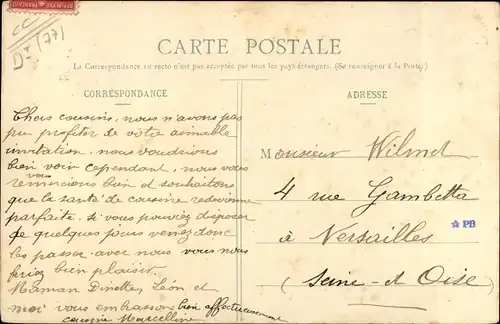 CC
77
CARTE POSTALE
La Correspondance au recto n'est pas acceptée par tous les pays étrangers. (Se renseigner à la Poste)
CORRESPONDANCE
Chers cousins, nous n'avons pas
pu profiter de votre aimable
invitation, nous voudrions
bien voir cependant, nous vous
vous
remercions bien et souhaitons
que la santé de cousine redevienne
parfaite. si vous pouviez disposer
de quelques jours venez donc
les passer avec nous vous nous
feriez bien plaisir.
Maman Dinette, Léon et
moi vous embrassons bien affectueusement
cousine Marcelline
ADRESSE
Monsieur Wilmet
4 rue Gambetta
à Versailles
(Seine-et Oise)
PB